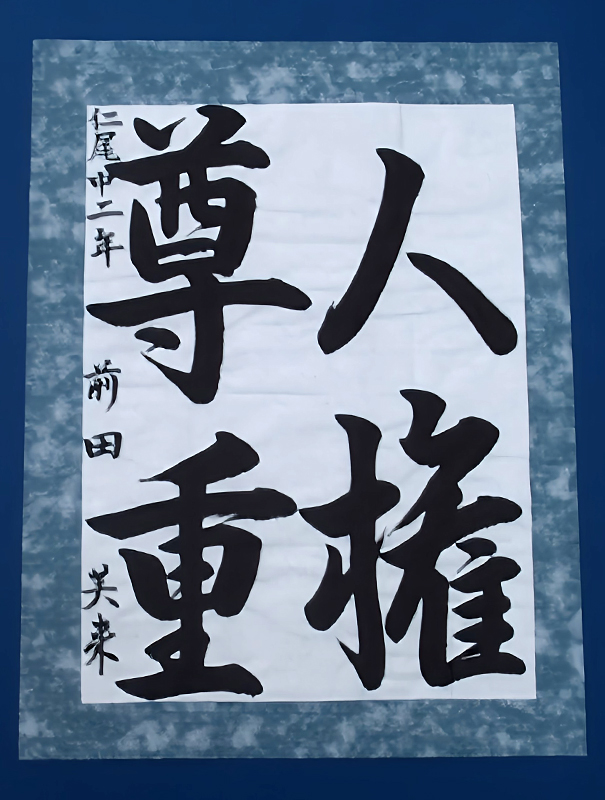 人権
尊重
仁尾中二年 前田 美来